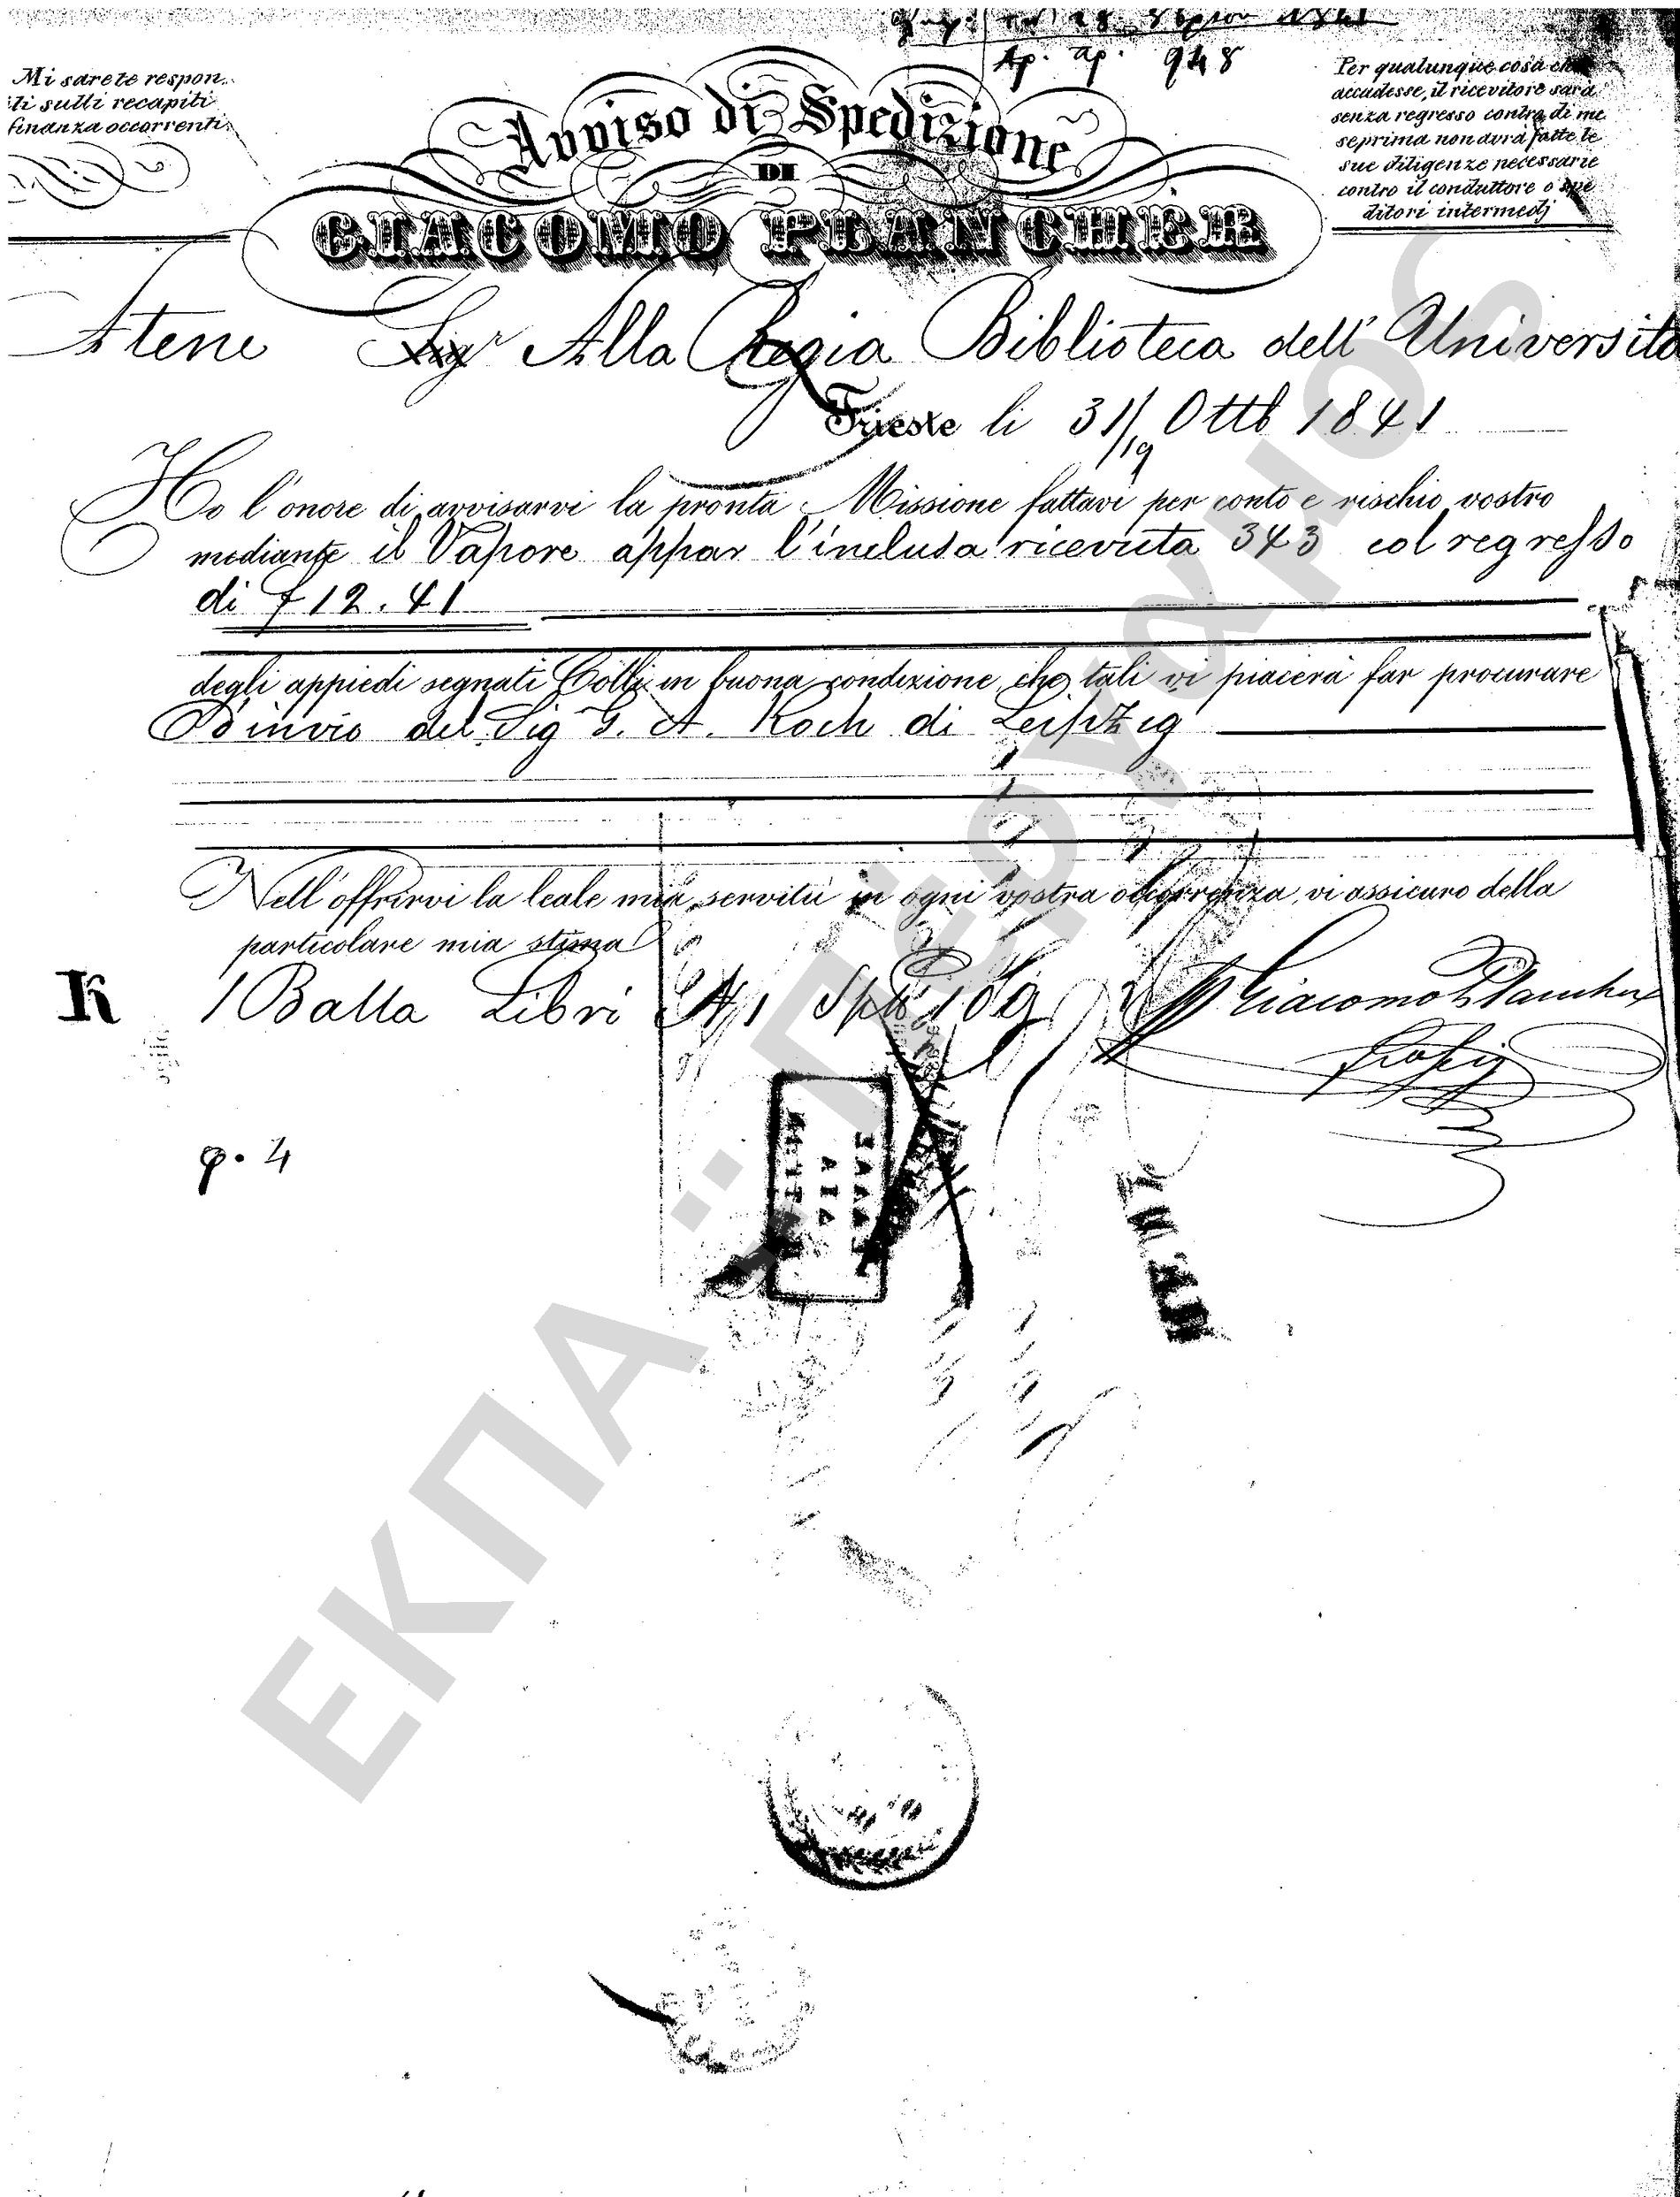 1841
Αρ. πρ. 948
Mi sarete respon..
li sulli recapiti
finanza occorrenti.
Per qualunque cosa che
accadesse, il ricevitore sarà
senza regresso contro di me
se prima non avrà fatte le
sue diligenze necessarie
contro il conduttore o spe
ditori intermedj
Avviso di Spedizione
DI
GIACOMO PLANCHER
Atene Sigr Alla Regia Biblioteca dell' Università
Trieste li 31/19 Ottb 1841
Ho l'onore di avvisarvi la pronta Missione fattavi per conto e rischio vostro
mediante il Vapore appar l'inclusa ricevuta 343 col regresso
di f 12.41
degli appiedi segnati Colli in buona condizione che tali vi piacerà far procurare
D'invio del Sig G. A. Koch di Leipzig
Nell'offrirvi la leale mia servitù in ogni vostra occorrenza, vi assicuro della
particolare mia stima
K 1 Balla Libri Giacomo Plancher
φ. 4
ΕΚΠΑ